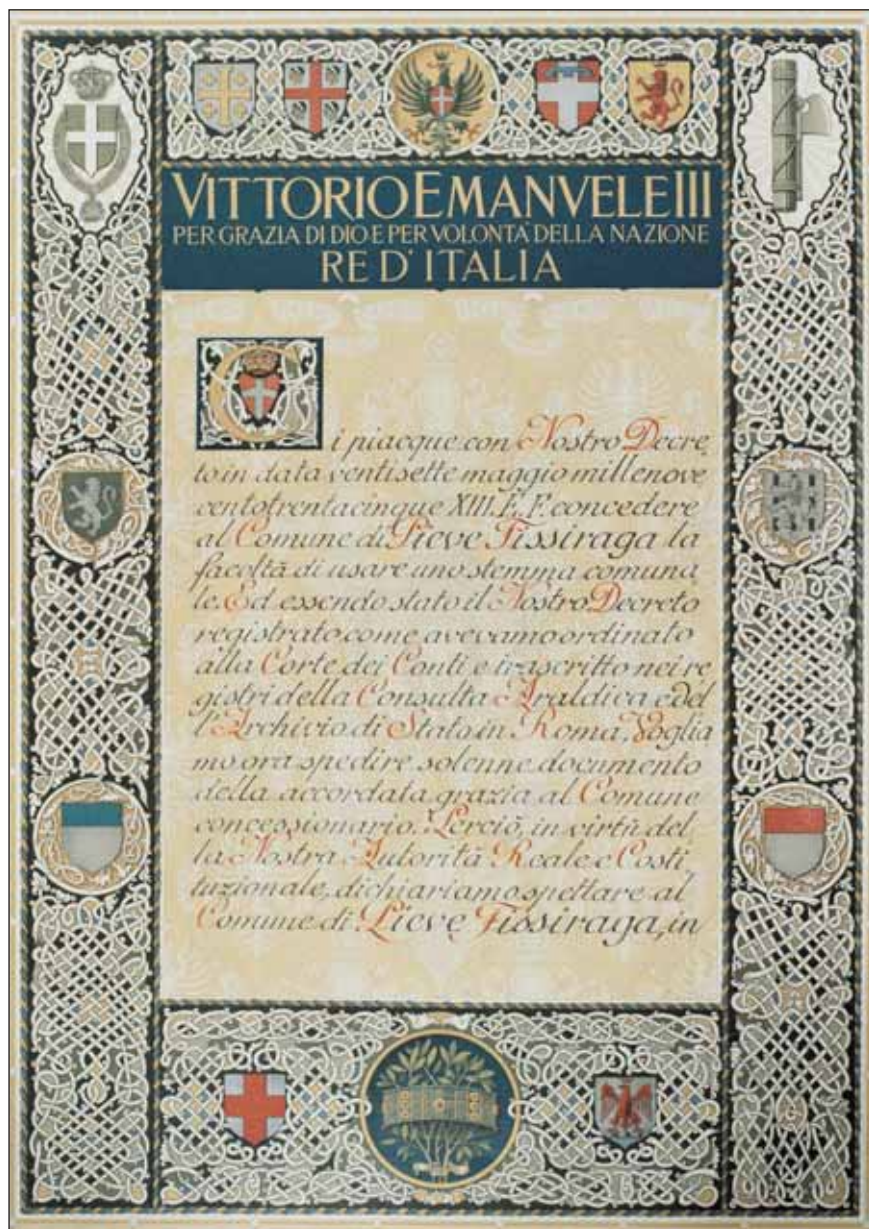 VITTORIO EMANVELE III
PER GRAZIA DI DIO E PER VOLONTÀ DELLA NAZIONE
RE D'ITALIA
Ci piacque con Nostro Decre,
to in data ventisette maggio millenove
centotrentacinque XIII. E. F. concedere
al Comune di Pieve Fissiraga la
facoltà di usare uno stemma comuna
le. Ed essendo stato il Nostro Decreto
registrato come avevamo ordinato
alla Corte dei Conti e trascritto nei re
gistri della Consulta Araldica e del
l'Archivio di Stato in Roma, Voglia
mo ora spedire solenne documento
della accordata grazia al Comune
concessionario. Perciò, in virtù del
la Nostra Autorità Reale e Costi
tuzionale, dichiariamo spettare al
Comune di Pieve Fissiraga, in